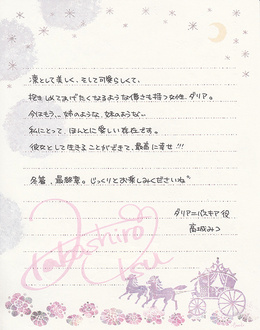 凛として美しく、そして可愛らしくて、
抱きしめてあげたくなるような儚さも持つ女性、ダリア。
今はもう、、姉のような、妹のような…
私にとって、ほんとに愛しい存在です。
彼女として生きることができて、最高に幸せ!!!
冬馬、最終章。じっくりとお楽しみくださいね♡
ダリア＝バスキア役
高城みつ